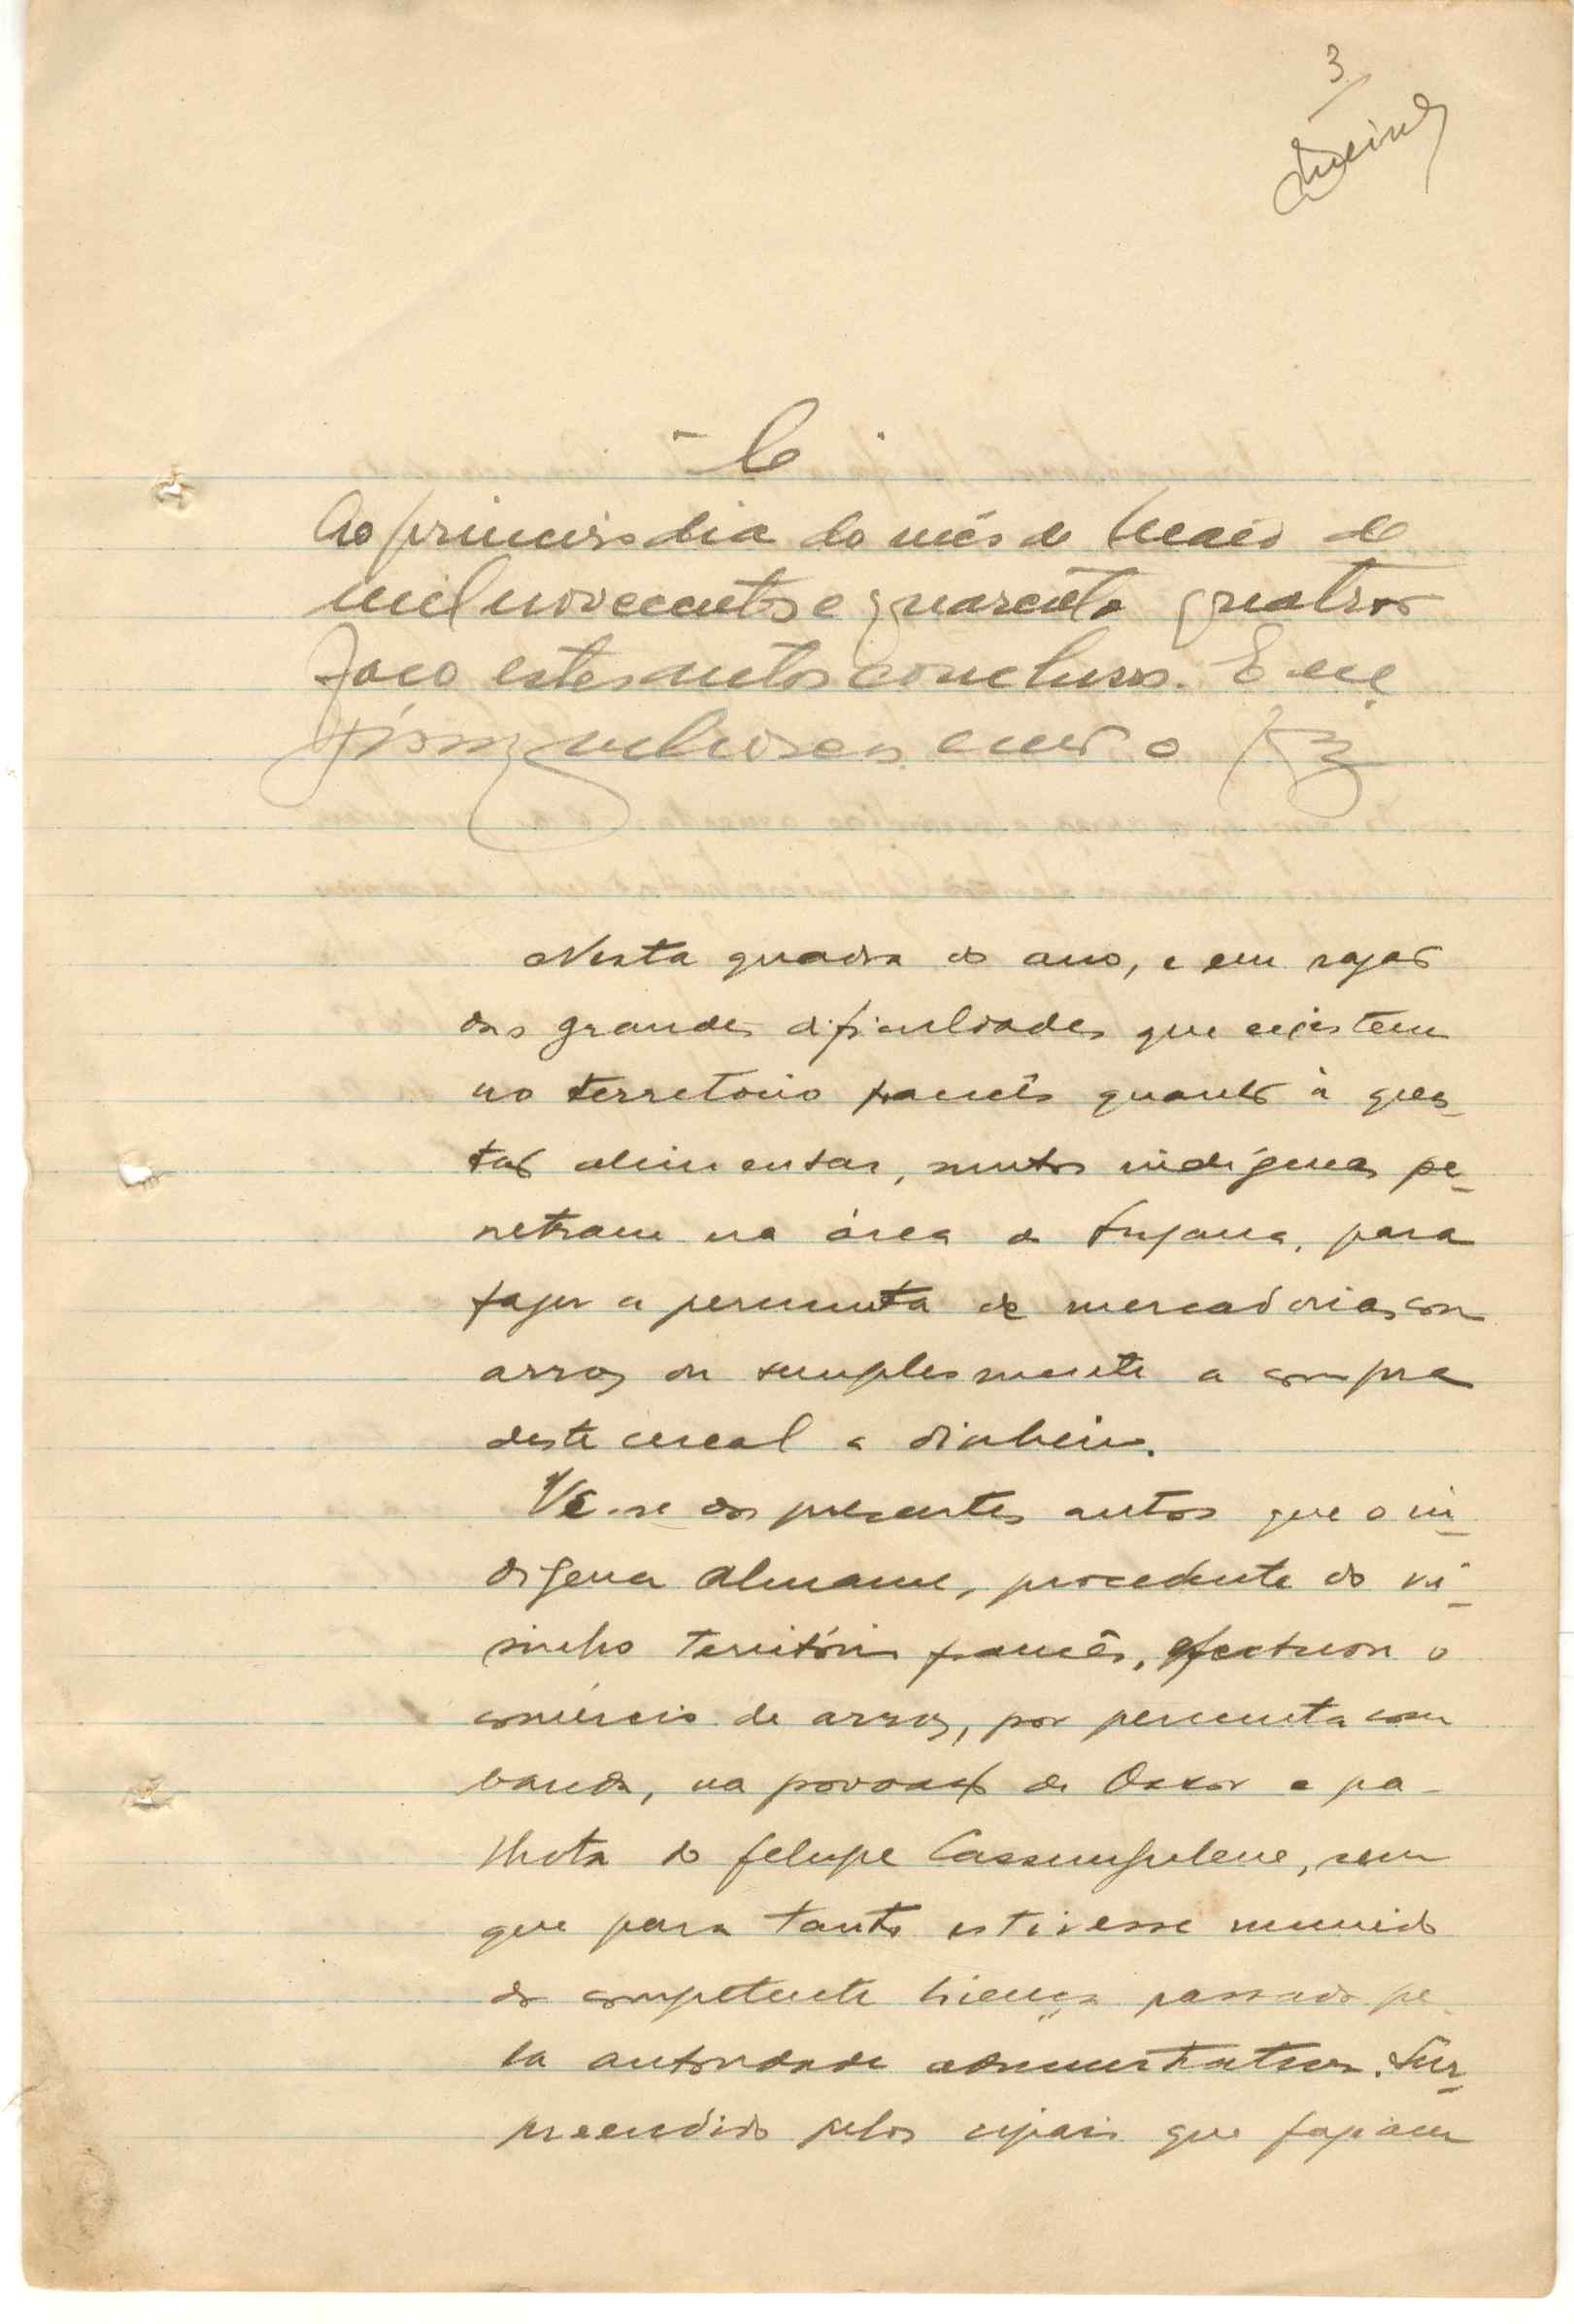 3
Ao primeiro dia do mês de Maio de
mil novecentos e quarenta quatro
faço estes autos conclusos. E eu,
escrivão o fiz
Nesta quadra do ano, e em razão
das grandes dificuldades que existem
no territorio francês quanto à ques-
tão alimentar, muitos indígenas pe-
netram na área de Suzana, para
fazer a permuta de mercadorias com
arroz ou simplesmente a compra
deste cereal a dinheiro.
Vê-se dos presentes autos que o in-
digena Almame, procedente do vi-
sinho território francês, efectuou o
comércio de arroz, por permuta com
banda, na povoação de Ossor e pa-
lhota do felupe Cassumpulene, sem
que para tanto estivesse munido
da competente licença passada pe-
la autoridade administrativa. Sur-
preendido pelos cipais que faziam